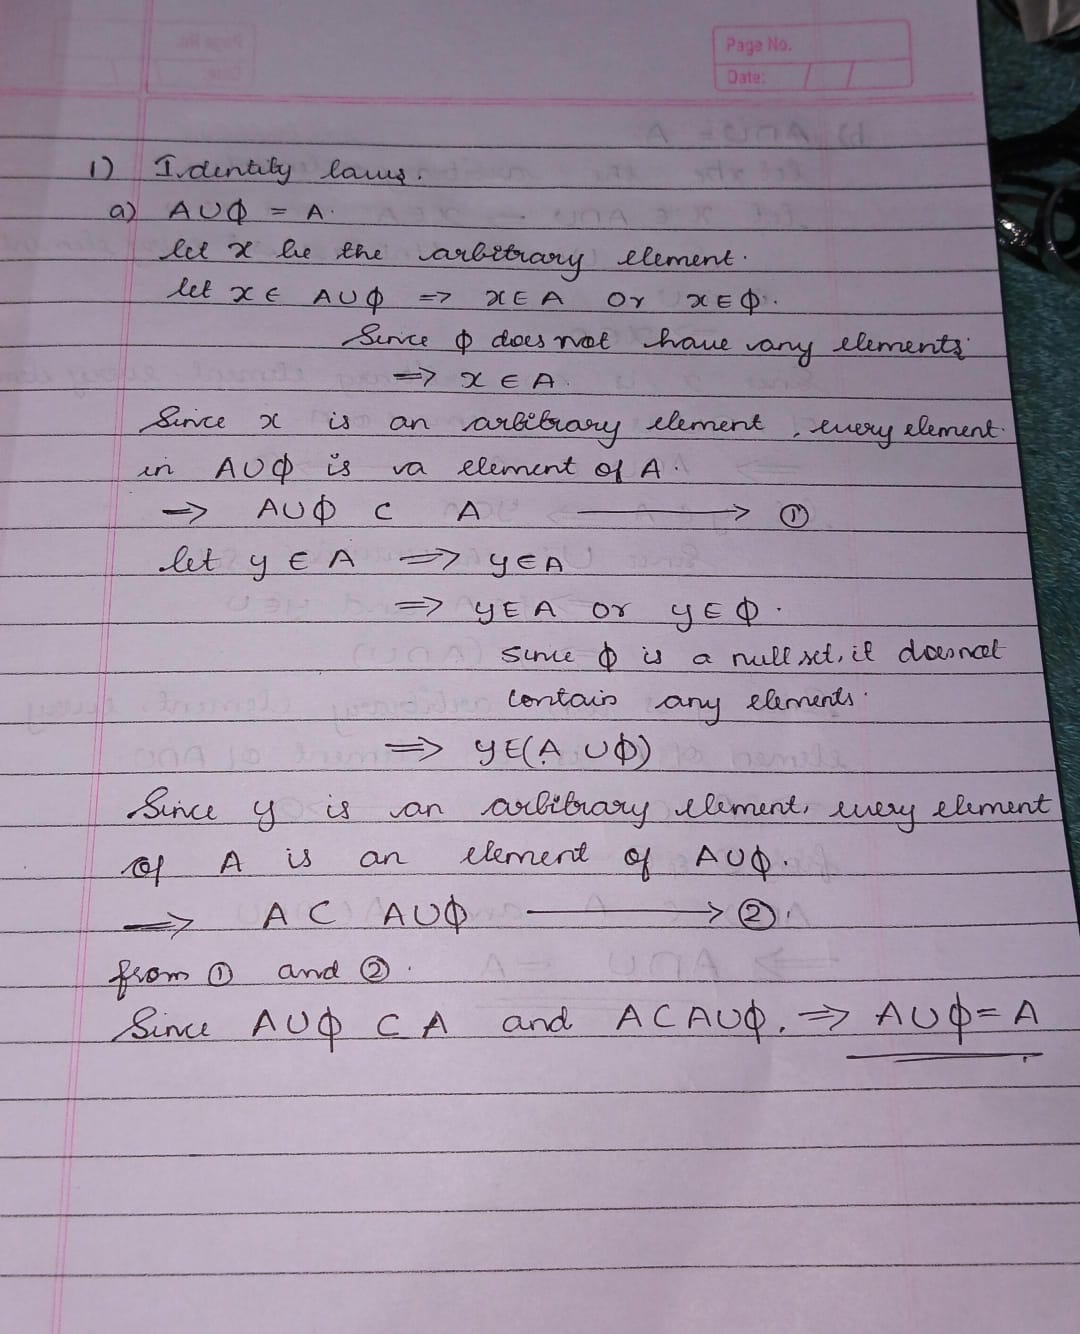 Page No.
Date: / /
1) Identity laws.
a) A∪ϕ = A.
let x be the arbitrary element.
let x ∈ A∪ϕ => x∈A or x∈ϕ.
Since ϕ does not have any elements.
=> x ∈ A.
Since x is an arbitrary element, every element
in A∪ϕ is a element of A.
=> A∪ϕ ⊂ A ⟶ ①
let y ∈ A => y∈A
=> y∈A or y∈ϕ.
Since ϕ is a null set, it does not
contain any elements.
=> y∈(A∪ϕ)
Since y is an arbitrary element, every element
of A is an element of A∪ϕ.
=> A ⊂ A∪ϕ ⟶ ②.
from ① and ②.
Since A∪ϕ ⊂ A and A⊂A∪ϕ. => A∪ϕ=A